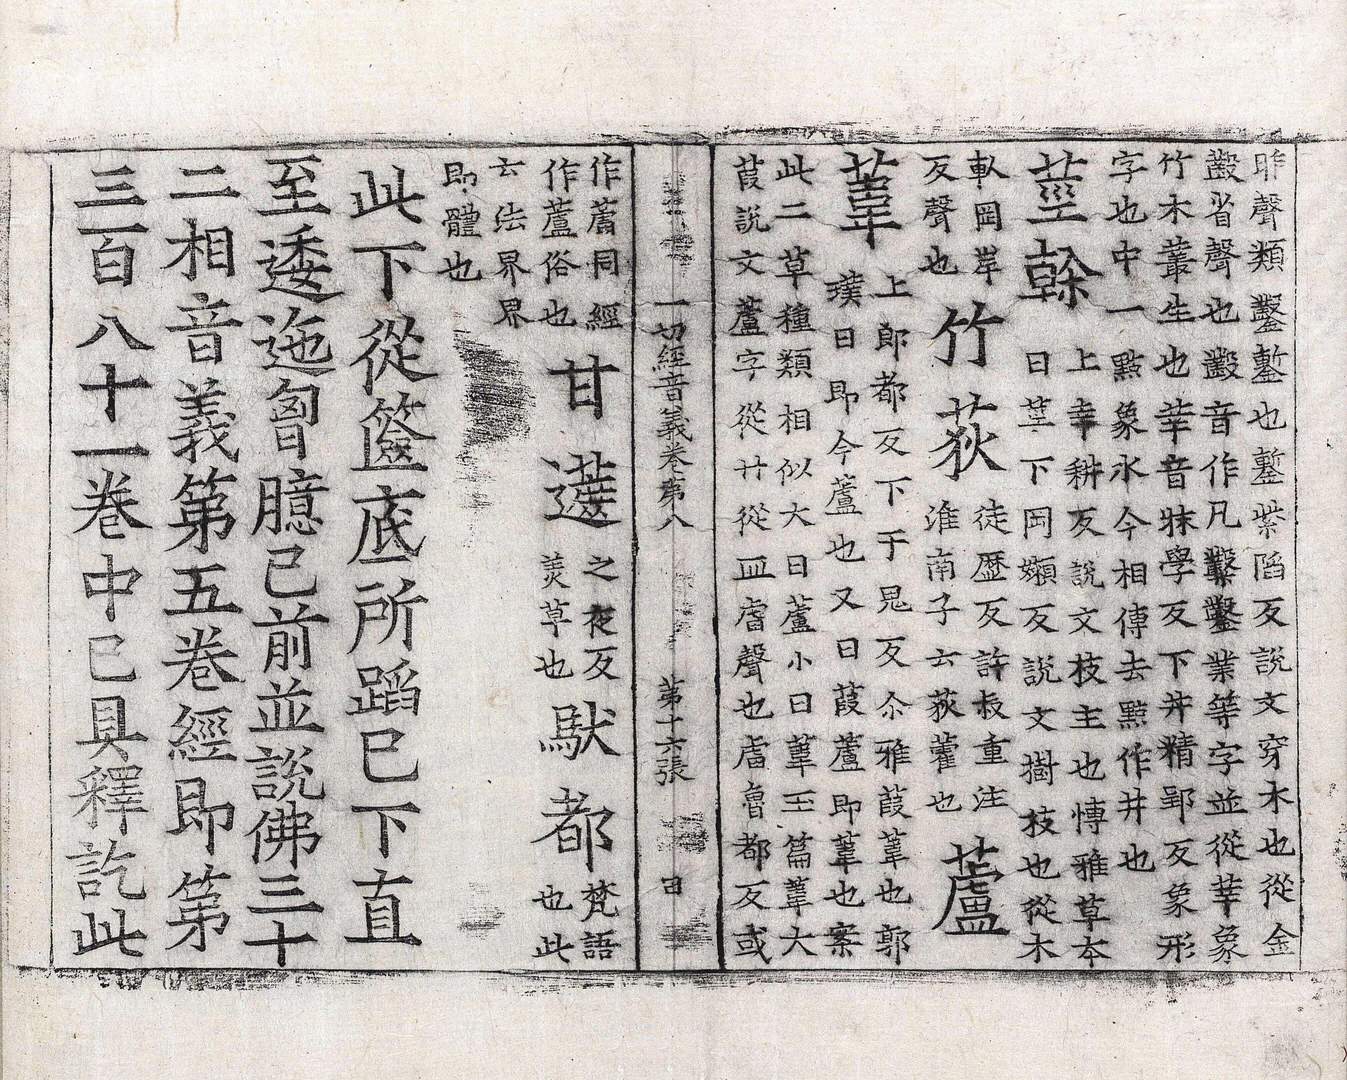 昨聲類鑿鏨也鏨柴陷反說文穿木也從金
毇省聲也毇音作凡鑿鑿業等字並從丵象
竹木叢生也丵音牀學反下井精郢反象形
字也中一點象水今相傳去點作井也
莖幹上幸耕反說文枝主也博雅草本
曰莖下岡嬾反說文樹枝也從木
倝岡岸
反聲也
竹荻徒歷反許叔重注
淮南子云荻藿也
蘆
葦上郎都反下于鬼反尒雅葭葦也郭
璞曰即今蘆也又曰葭蘆即葦也案
此二草種類相似大曰蘆小曰葦玉篇葦大
葭說文蘆字從艹從皿虘聲也虘魯都反或
一切經音義卷第八 第十六張 日
作蘆同經
作蘆俗也
云法界界
即體也
甘䕮之夜反
䕮草也
馱都梵語
也此
此下從篋底所蹈已下直
至逶迤匈臆已前並說佛三十
二相音義第五卷經即第
三百八十一卷中已具釋訖此